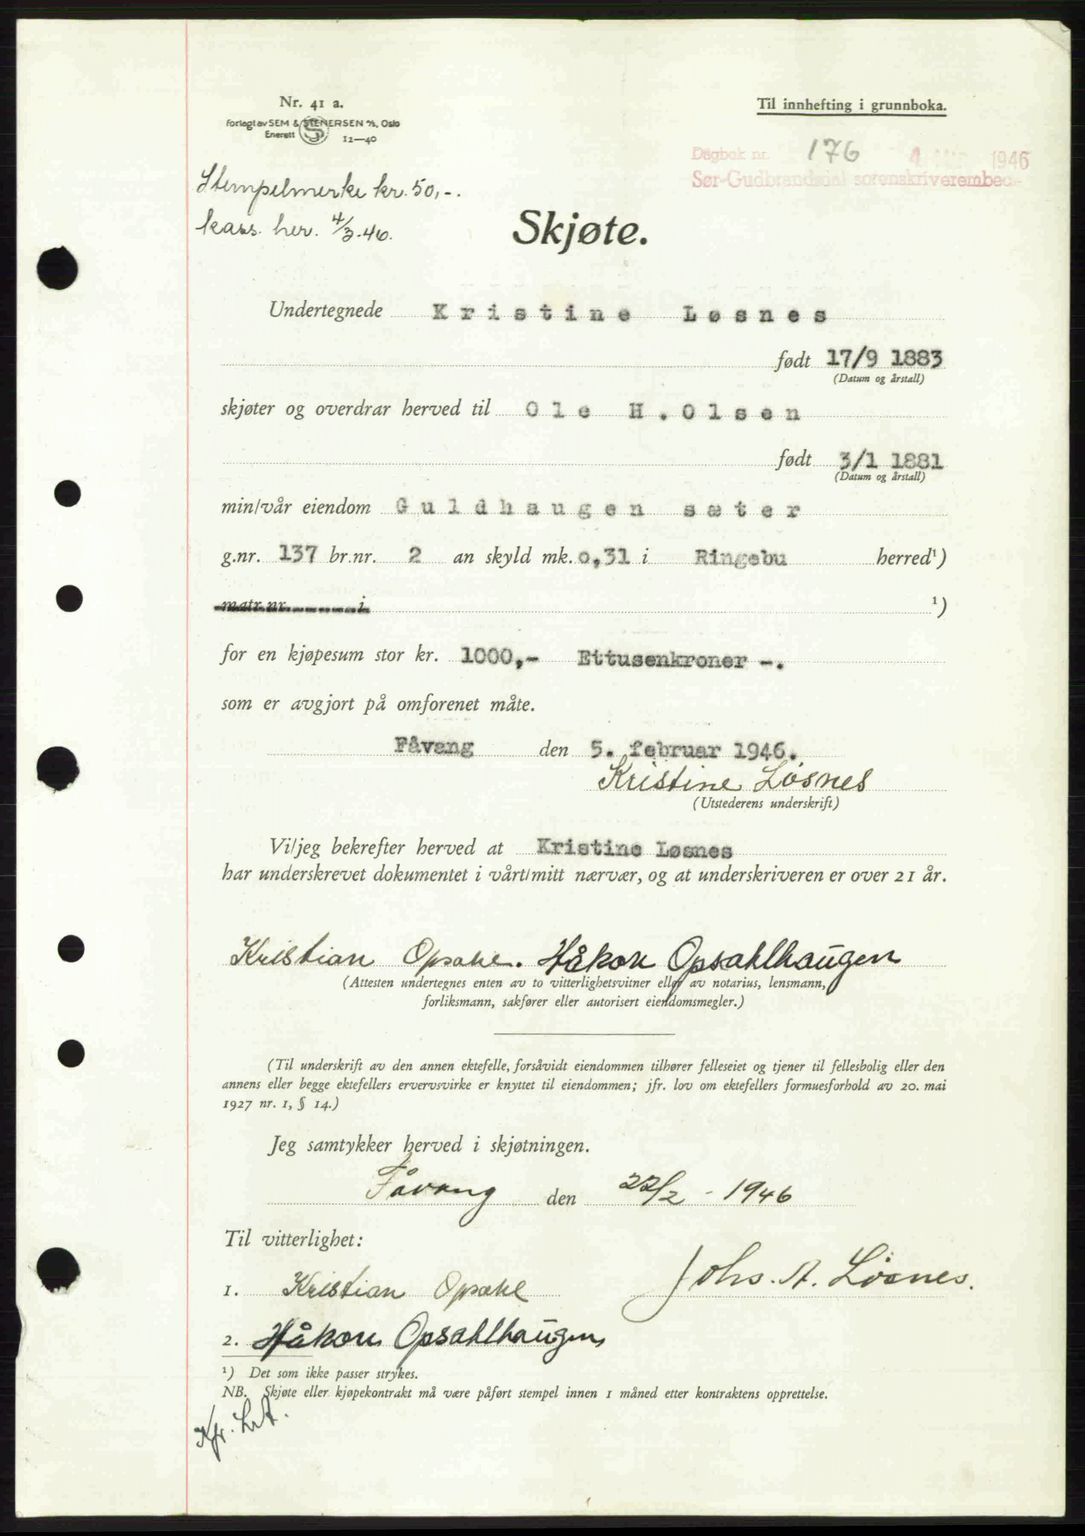 Nr. 41 a.
Forlagt av SEM & STENERSEN A/S, Oslo
Enerett 12—40
Til innhefting i grunnboka.
Dagbok nr. 176 4 1946
Sør-Gudbrandsdal sorenskriverembe
Stempelmerke kr. 50,-.
kass. her. 4/3.46.
Skjøte.
Undertegnede Kristine Løsnes
født 17/9 1883
(Datum og årstall)
skjøter og overdrar herved til Ole H. Olsen
født 3/1 1881
(Datum og årstall)
min/vår eiendom Guldhaugen sæter
g.nr. 137 br.nr. 2 an skyld mk. 0,31 i Ringebu herred¹)
matr.nr. i ¹)
for en kjøpesum stor kr. 1000,- Ettusenkroner -.
som er avgjort på omforenet måte.
Fåvang den 5. februar 1946.
Kristine Løsnes
(Utstederens underskrift)
Vi/jeg bekrefter herved at Kristine Løsnes
har underskrevet dokumentet i vårt/mitt nærvær, og at underskriveren er over 21 år.
Kristian Opsahl. Håkon Opsahlhaugen
(Attesten undertegnes enten av to vitterlighetsvitner eller av notarius, lensmann,
forliksmann, sakfører eller autorisert eiendomsmegler.)
(Til underskrift av den annen ektefelle, forsåvidt eiendommen tilhører felleseiet og tjener til fellesbolig eller den
annens eller begge ektefellers ervervsvirke er knyttet til eiendommen; jfr. lov om ektefellers formuesforhold av 20. mai
1927 nr. 1, § 14.)
Jeg samtykker herved i skjøtningen.
Fåvang den 22/2 - 1946
Til vitterlighet:
Johs. A. Løsnes.
1. Kristian Opsahl
2. Håkon Opsahlhaugen
¹) Det som ikke passer strykes.
NB. Skjøte eller kjøpekontrakt må være påført stempel innen 1 måned etter kontraktens opprettelse.